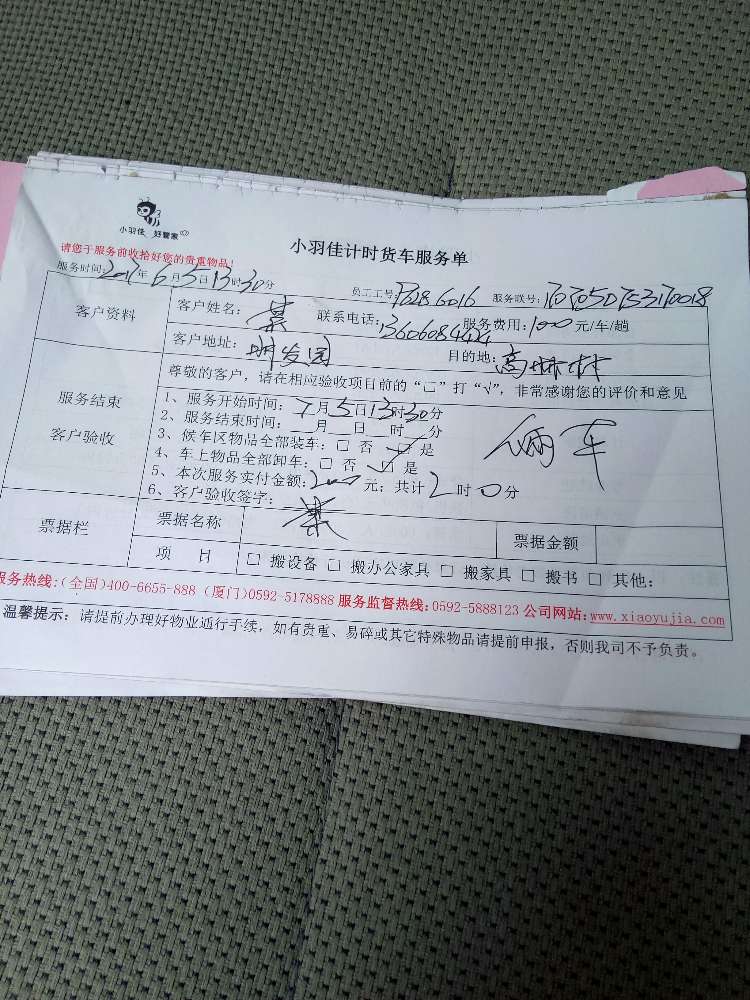 小羽佳 好管家
小羽佳计时货车服务单
请您于服务前收拾好您的贵重物品！
服务时间：2017年6月5日13时30分 员工工号 服务联号：
客户资料 客户姓名： 联系电话：13606084424 服务费用：1000元/车/趟
客户地址：明发园 目的地：高林村
服务结束 客户验收
尊敬的客户，请在相应验收项目前的“□”打“√”，非常感谢您的评价和意见
1、服务开始时间：7月5日13时30分
2、服务结束时间：__月__日__时__分
3、候车区物品全部装车：□ 否 ☑ 是
4、车上物品全部卸车：□ 否 ☑ 是
5、本次服务实付金额：2000元；共计2时0分
6、客户验收签字：
俩车
票据栏 票据名称 票据金额
项 目 □ 搬设备 □ 搬办公家具 □ 搬家具 □ 搬书 □ 其他：
服务热线：(全国)400-6655-888 (厦门)0592-5178888 服务监督热线：0592-5888123 公司网站：www.xiaoyujia.com
温馨提示：请提前办理好物业通行手续，如有贵重、易碎或其它特殊物品请提前申报，否则我司不予负责。